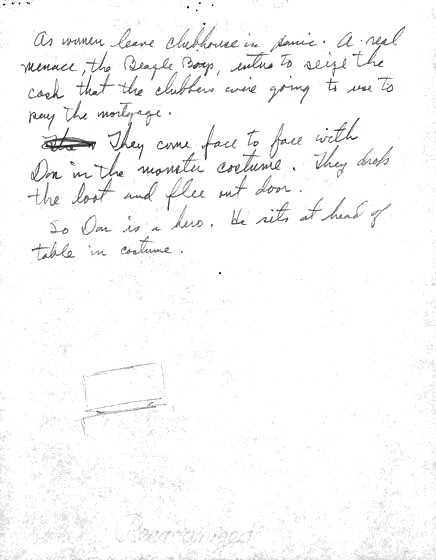 As women leave clubhouse in panic. A real
menace, the Beagle Boys, enters to seize the
cash that the clubbers were going to use to
pay the mortgage.
They come face to face with
Don in the monster costume. They drop
the loot and flee out door.
So Don is a hero. He sits at head of
table in costume.